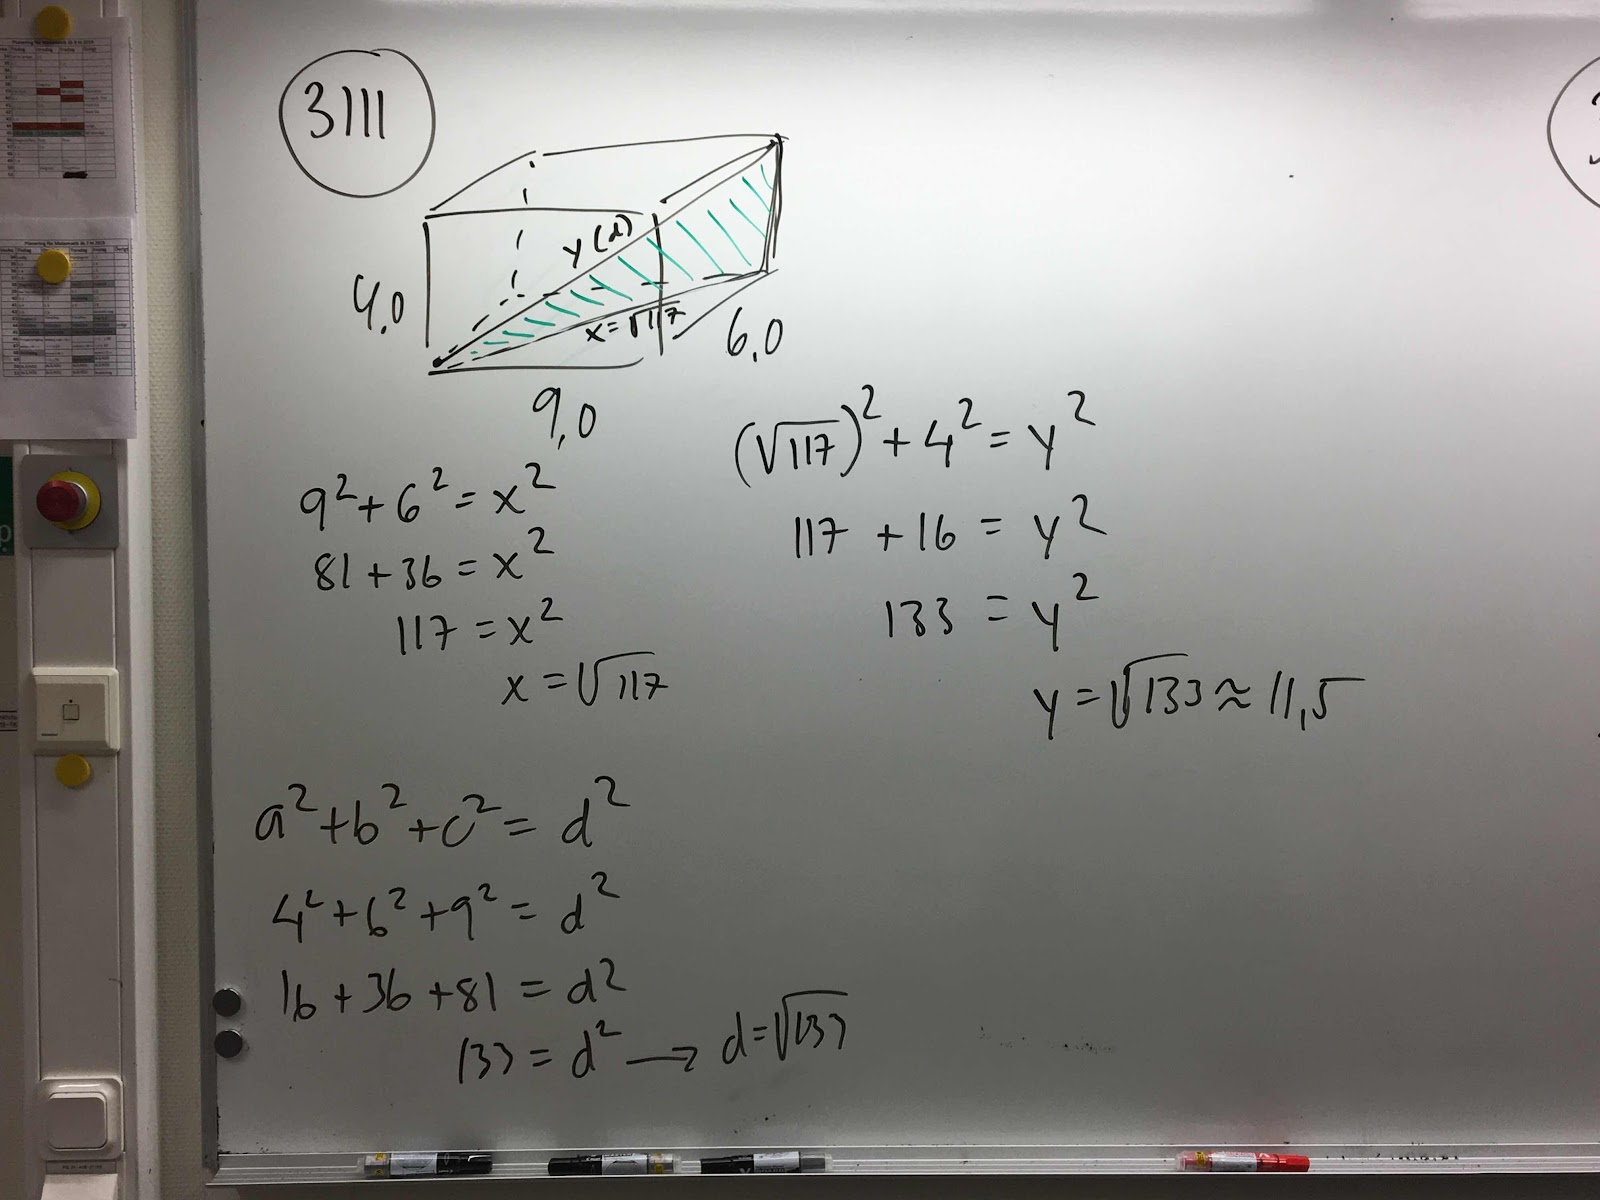 3111
y (d)
4,0
x = √117
6,0
9,0
9² + 6² = x²
81 + 36 = x²
117 = x²
x = √117
(√117)² + 4² = y²
117 + 16 = y²
133 = y²
y = √133 ≈ 11,5
a² + b² + c² = d²
4² + 6² + 9² = d²
16 + 36 + 81 = d²
133 = d² → d = √133